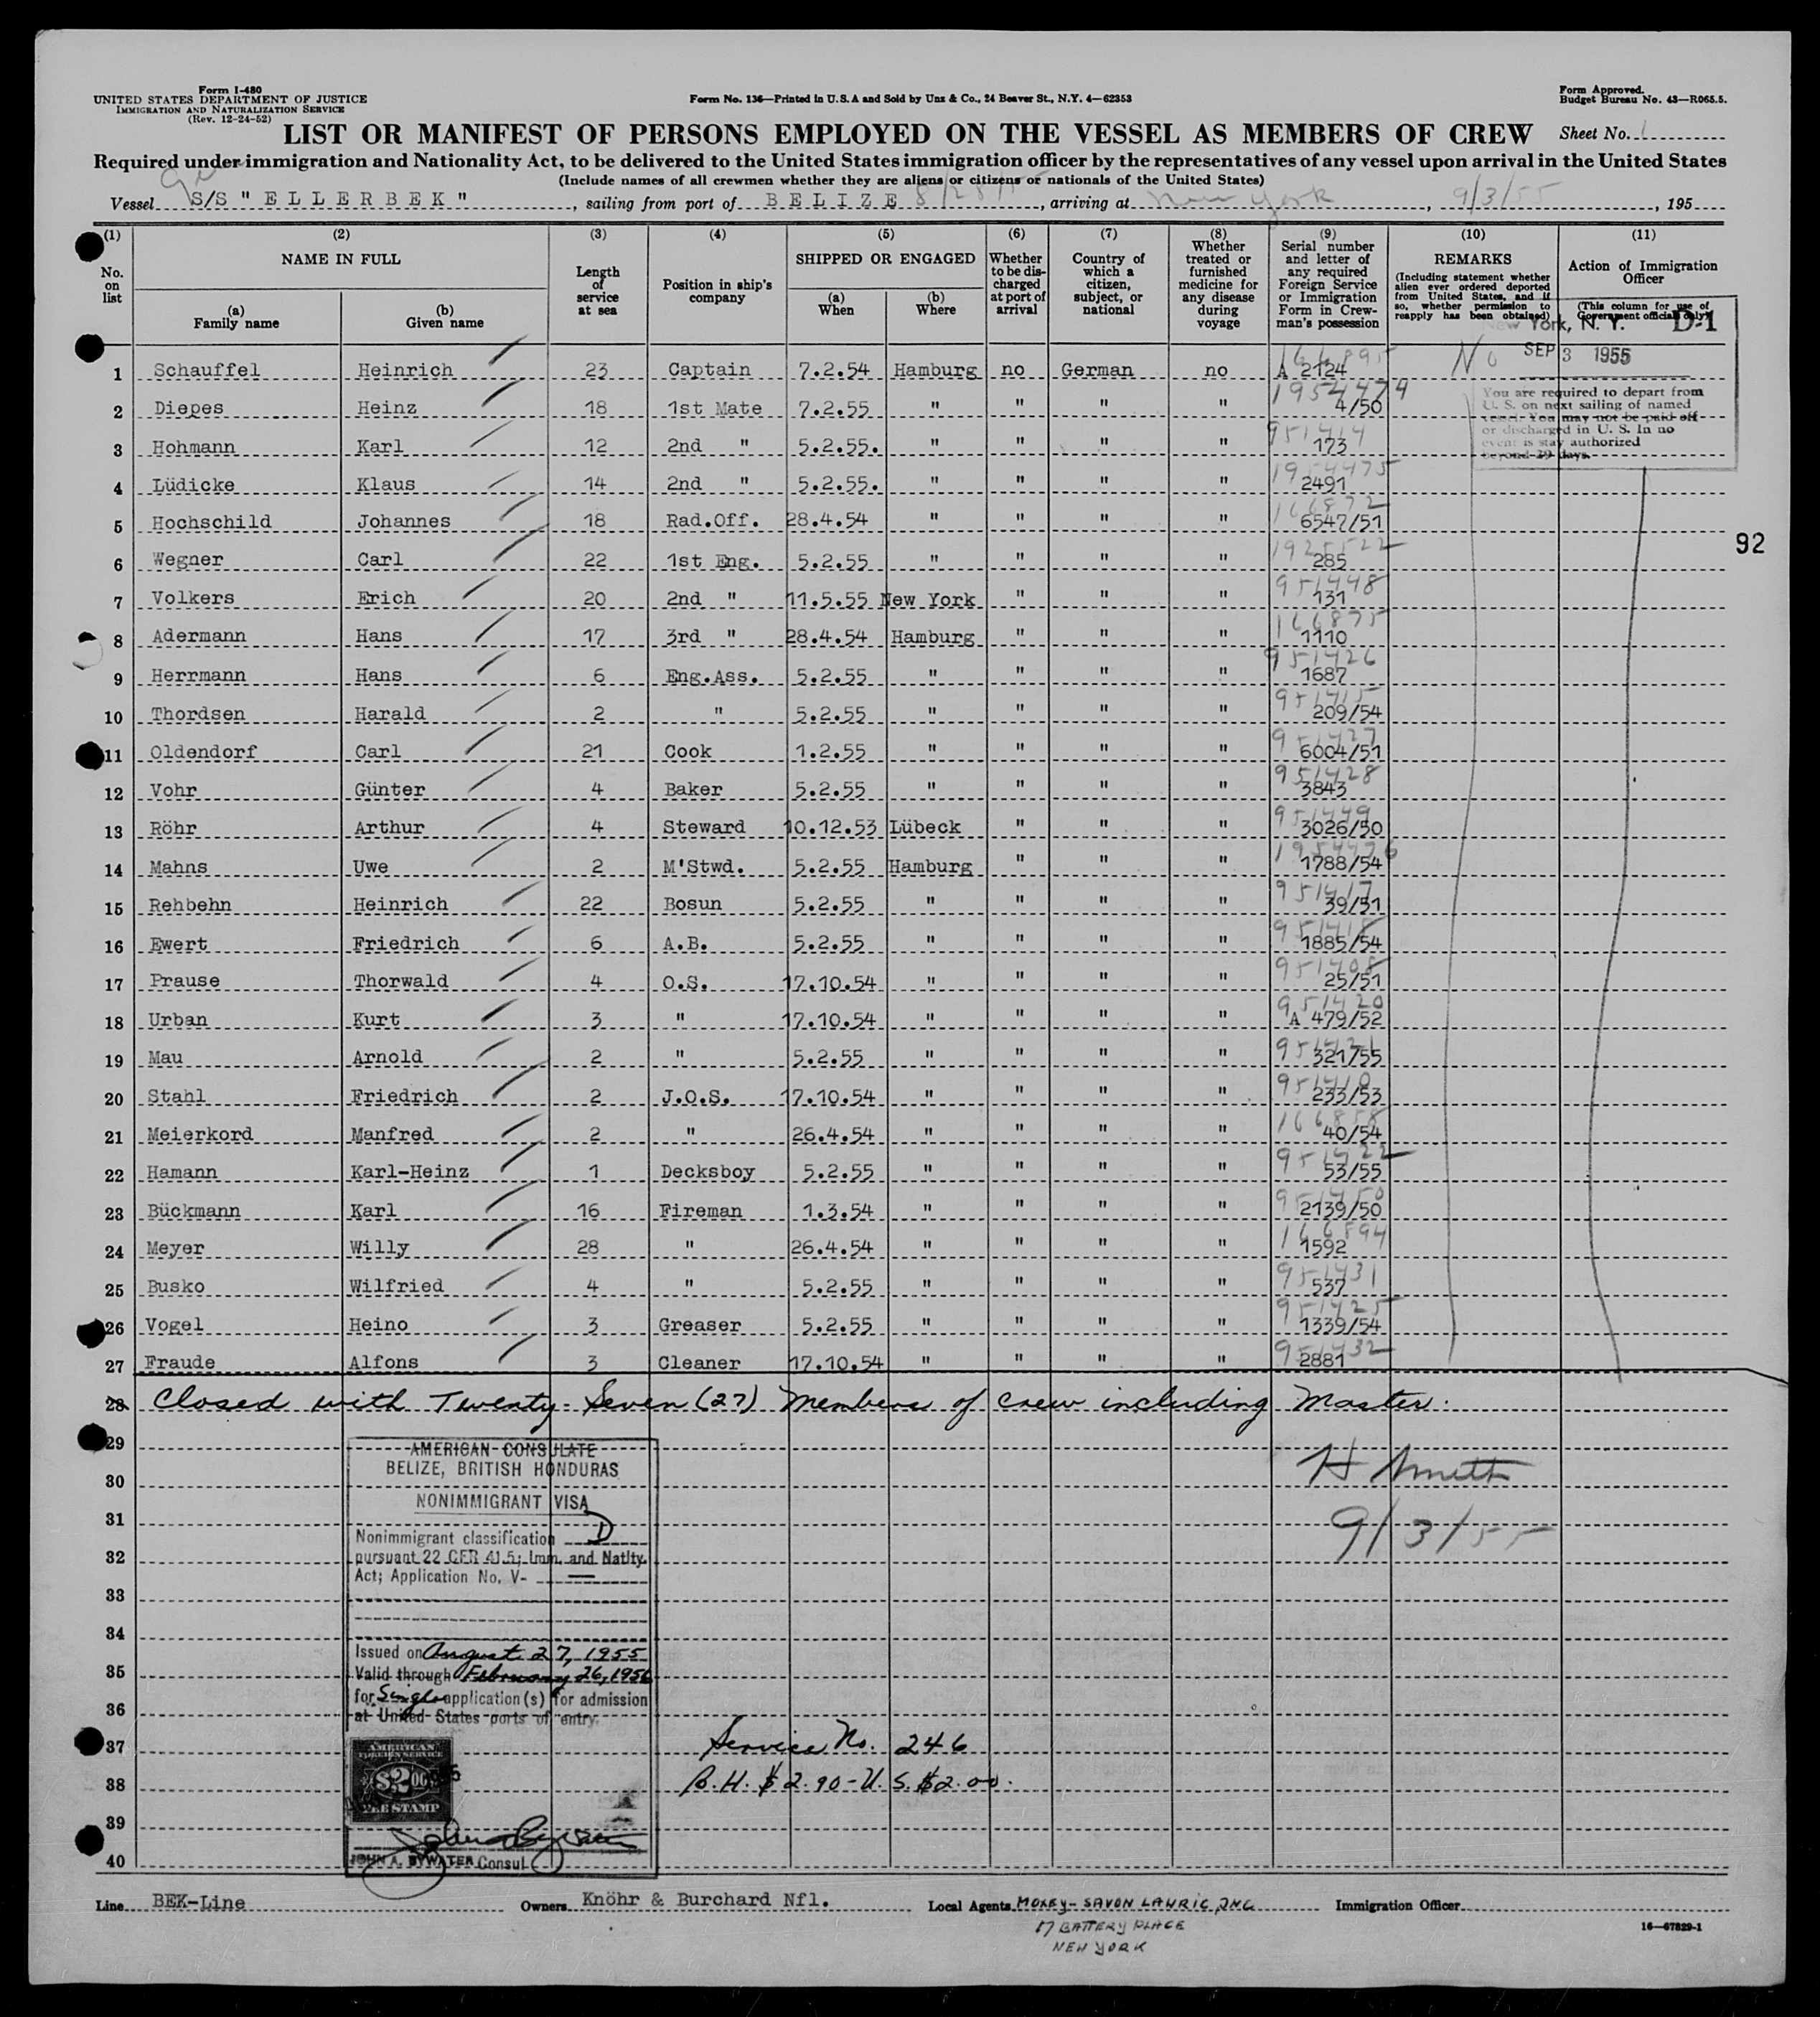 Form I-480
UNITED STATES DEPARTMENT OF JUSTICE
IMMIGRATION AND NATURALIZATION SERVICE
(Rev. 12-24-52)
Form No. 136—Printed in U.S.A and Sold by Unz & Co., 24 Beaver St., N.Y. 4—62353
Form Approved.
Budget Bureau No. 43—R065.5.
LIST OR MANIFEST OF PERSONS EMPLOYED ON THE VESSEL AS MEMBERS OF CREW Sheet No. 1
Required under immigration and Nationality Act, to be delivered to the United States immigration officer by the representatives of any vessel upon arrival in the United States
(Include names of all crewmen whether they are aliens or citizens or nationals of the United States)
Vessel S/S "ELLERBEK", sailing from port of BELIZE 8/28/55, arriving at New York, 9/3/55, 195
(1) (2) (3) (4) (5) (6) (7) (8) (9) (10) (11)
No. on list
NAME IN FULL
(a) Family name
(b) Given name
Length of service at sea
Position in ship's company
SHIPPED OR ENGAGED
(a) When
(b) Where
Whether to be discharged at port of arrival
Country of which a citizen, subject, or national
Whether treated or furnished medicine for any disease during voyage
Serial number and letter of any required Foreign Service or Immigration Form in Crewman's possession
REMARKS
(Including statement whether alien ever ordered deported from United States, and if so, whether permission to reapply has been obtained)
Action of Immigration Officer
(This column for use of Government officials only)
New York, N. Y. D-1
SEP 3 1955
You are required to depart from
U. S. on next sailing of named
vessel. You may not be paid off
or discharged in U. S. In no
event is stay authorized
beyond 29 days.
1 Schauffel Heinrich 23 Captain 7.2.54 Hamburg no German no 166895 A 2124 No
2 Diepes Heinz 18 1st Mate 7.2.55 " " " " 1954474 4/50
3 Hohmann Karl 12 2nd " 5.2.55. " " " " 951414 173
4 Lüdicke Klaus 14 2nd " 5.2.55. " " " " 1954475 2491
5 Hochschild Johannes 18 Rad.Off. 28.4.54 " " " " 166872 6547/51
6 Wegner Carl 22 1st Eng. 5.2.55 " " " " 1925522 285
7 Volkers Erich 20 2nd " 11.5.55 New York " " " 951448 131
8 Adermann Hans 17 3rd " 28.4.54 Hamburg " " " 166875 1110
9 Herrmann Hans 6 Eng.Ass. 5.2.55 " " " " 951426 1687
10 Thordsen Harald 2 " 5.2.55 " " " " 951415 209/54
11 Oldendorf Carl 21 Cook 1.2.55 " " " " 951427 6004/51
12 Vohr Günter 4 Baker 5.2.55 " " " " 951428 3843
13 Röhr Arthur 4 Steward 10.12.53 Lübeck " " " 951449 3026/50
14 Mahns Uwe 2 M'Stwd. 5.2.55 Hamburg " " " 1954476 1788/54
15 Rehbehn Heinrich 22 Bosun 5.2.55 " " " " 951417 39/51
16 Ewert Friedrich 6 A.B. 5.2.55 " " " " 951418 1885/54
17 Prause Thorwald 4 O.S. 17.10.54 " " " " 951408 25/51
18 Urban Kurt 3 " 17.10.54 " " " " 951420 A 479/52
19 Mau Arnold 2 " 5.2.55 " " " " 951421 321/55
20 Stahl Friedrich 2 J.O.S. 17.10.54 " " " " 951410 233/53
21 Meierkord Manfred 2 " 26.4.54 " " " " 166858 40/54
22 Hamann Karl-Heinz 1 Decksboy 5.2.55 " " " " 951422 53/55
23 Bückmann Karl 16 Fireman 1.3.54 " " " " 951450 2139/50
24 Meyer Willy 28 " 26.4.54 " " " " 166894 1592
25 Busko Wilfried 4 " 5.2.55 " " " " 951431 537
26 Vogel Heino 3 Greaser 5.2.55 " " " " 951425 1339/54
27 Fraude Alfons 3 Cleaner 17.10.54 " " " " 951432 2881
92
28 Closed with Twenty-Seven (27) Members of crew including Master.
29
30
31
32
33
34
35
36
37
38
39
40
AMERICAN CONSULATE
BELIZE, BRITISH HONDURAS
NONIMMIGRANT VISA
Nonimmigrant classification D
pursuant 22 CFR 41.5; Imm. and Natlty.
Act; Application No. V- —
Issued on August 27, 1955
Valid through February 26, 1956
for Single application(s) for admission
at United States ports of entry.
AMERICAN
FOREIGN SERVICE
$2.00
FEE STAMP
JOHN A. BYWATER Consul
9/3/55
Service No. 246
B.H. $2.90 - U.S. $2.00.
Line BEK-Line Owners Knöhr & Burchard Nfl. Local Agents MOXEY-SAVON LAWRIC, INC. Immigration Officer
17 BATTERY PLACE
NEW YORK
16—67829-1